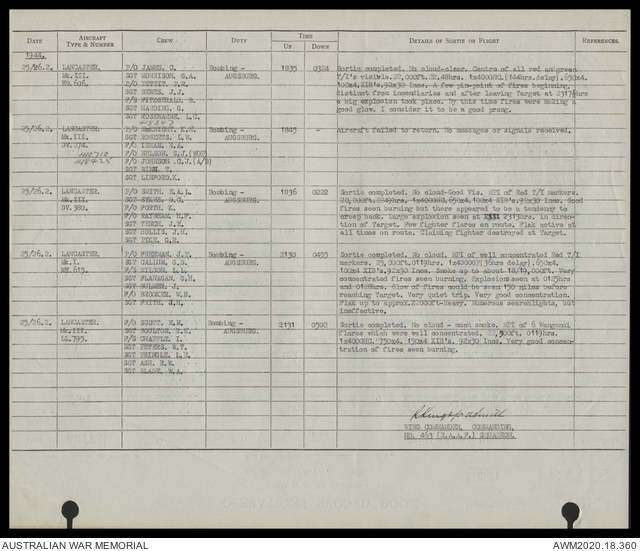 DATE AIRCRAFT TYPE & NUMBER CREW DUTY TIME UP DOWN DETAILS OF SORTIE OR FLIGHT REFERENCES.
1944.
25/26.2. LANCASTER. P/O JAMES, C. Bombing - 1835 0324 Sortie completed. No cloud-clear. Centre of all red and green
Mk.III. SGT MORRISON, G.A. AUGSBURG. T/I's visible. 22,000ft. 22.48hrs. 1x4000HC. (144hrs.delay). 650x4.
SGT 100x4.XIB's.92x30 Incs. A few pin-point of fires beginning,
SGT distinct from incendiaries and after leaving Target at 2317hrs
F/S FITZGERALD, a big explosion took place. By this time fires were making a
SGT HARDING, G. good glow. I consider it to be a good prang.
SGT L.C.
25/26.2. LANCASTER. K.H. Bombing - 1845 - Aircraft failed to return. No messages or signals received.
Mk.III. SGT ROBERTS, L.W. AUGSBURG.
DV.274. P/O
F/O NELSON, R.J. (WOP)
F/O JOHNSON C.J. (A/B)
SGT WINN, T.
SGT LINFORD.K.
25/26.2. LANCASTER. P/O SMITH, E.A.L. Bombing - 1836 0222 Sortie completed. No cloud-Good Vis. MPI of Red T/I markers.
Mk.III. SGT SYKES, B.C. AUGSBURG. 20,000ft. 2249hrs. 1x4000HC.650x4.100x4 XIB's.92x30 Incs. Good
DV.380. P/O FORTH, K. fires seen burning but there appeared to be a tendency to
F/O H.F. creep back. Large explosion seen at 2315hrs. in direc-
SGT TENCH, J.H. tion of Target. Few fighter flares on route. Flak active at
SGT HOLLIS, J.H. all times on route. Claiming fighter destroyed at Target.
SGT G.R.
25/26.2. LANCASTER. P/O FREEMAN, J.F. Bombing - 2130 0455 Sortie completed. No cloud. MPI of well concentrated Red T/I
Mk.I. SGT C.D. AUGSBURG. markers. 23,000ft.0119hrs. 1x4000HC(36hrs delay).650x4.
ME.615. F/S WILSON, L.L. 100x4 XIB's.92x30 Incs. Smoke up to about 18/19,000ft. Very
SGT FLANAGAN, G.H. concentrated fires seen burning. Explosion seen at 0125hrs
SGT BULMER, J. and 0128hrs. Glow of fires could be seen 150 miles before
F/O BROOKER, W.H. reaching Target. Very quiet trip. Very good concentration.
SGT FRITH, J.H. Flak up to approx.22000ft-Heavy. Numerous searchlights, but
ineffective.
25/26.2. LANCASTER. P/O SCOTT, E.M. Bombing - 2131 0502 Sortie completed. No cloud - much smoke. MPI of 6 Wanganui
Mk.III. SGT MOULTON, R.W. AUGSBURG. flares which were well concentrated. 22,500ft. 0119hrs.
LL.795. F/S CHAPPLE, I. 1x4000HC. 750x4. 150x4 XIB's. 92x30 Incs. Very good concen-
SGT PETERS, W.T. tration of fires seen burning.
SGT PRINGLE, L.E.
SGT ASH, R.W.
SGT SLADE, W.A.
WING COMMANDER, COMMANDING,
NO. 463 (R.A.A.F.) SQUADRON.
AUSTRALIAN WAR MEMORIAL AWM2020.18.360